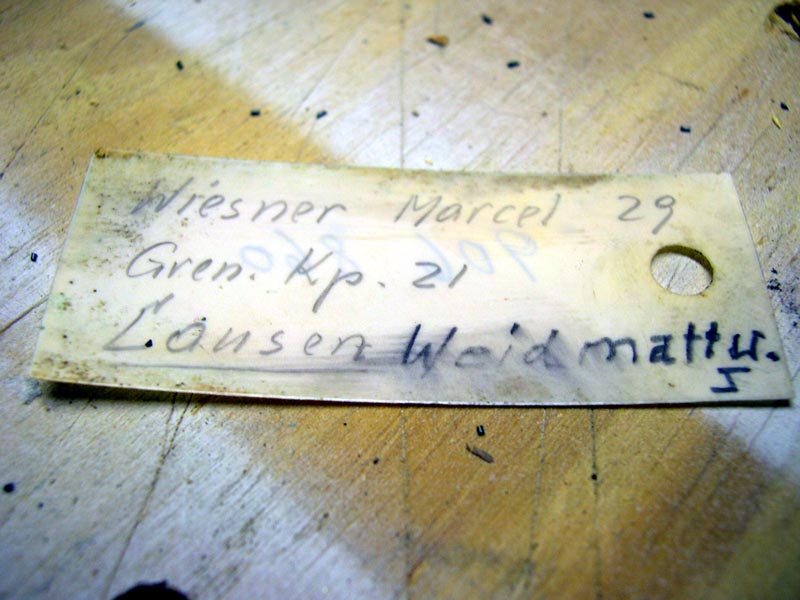 Wiesner Marcel 29
Gren. Kp. 21
Lausen Weidmattw.
I